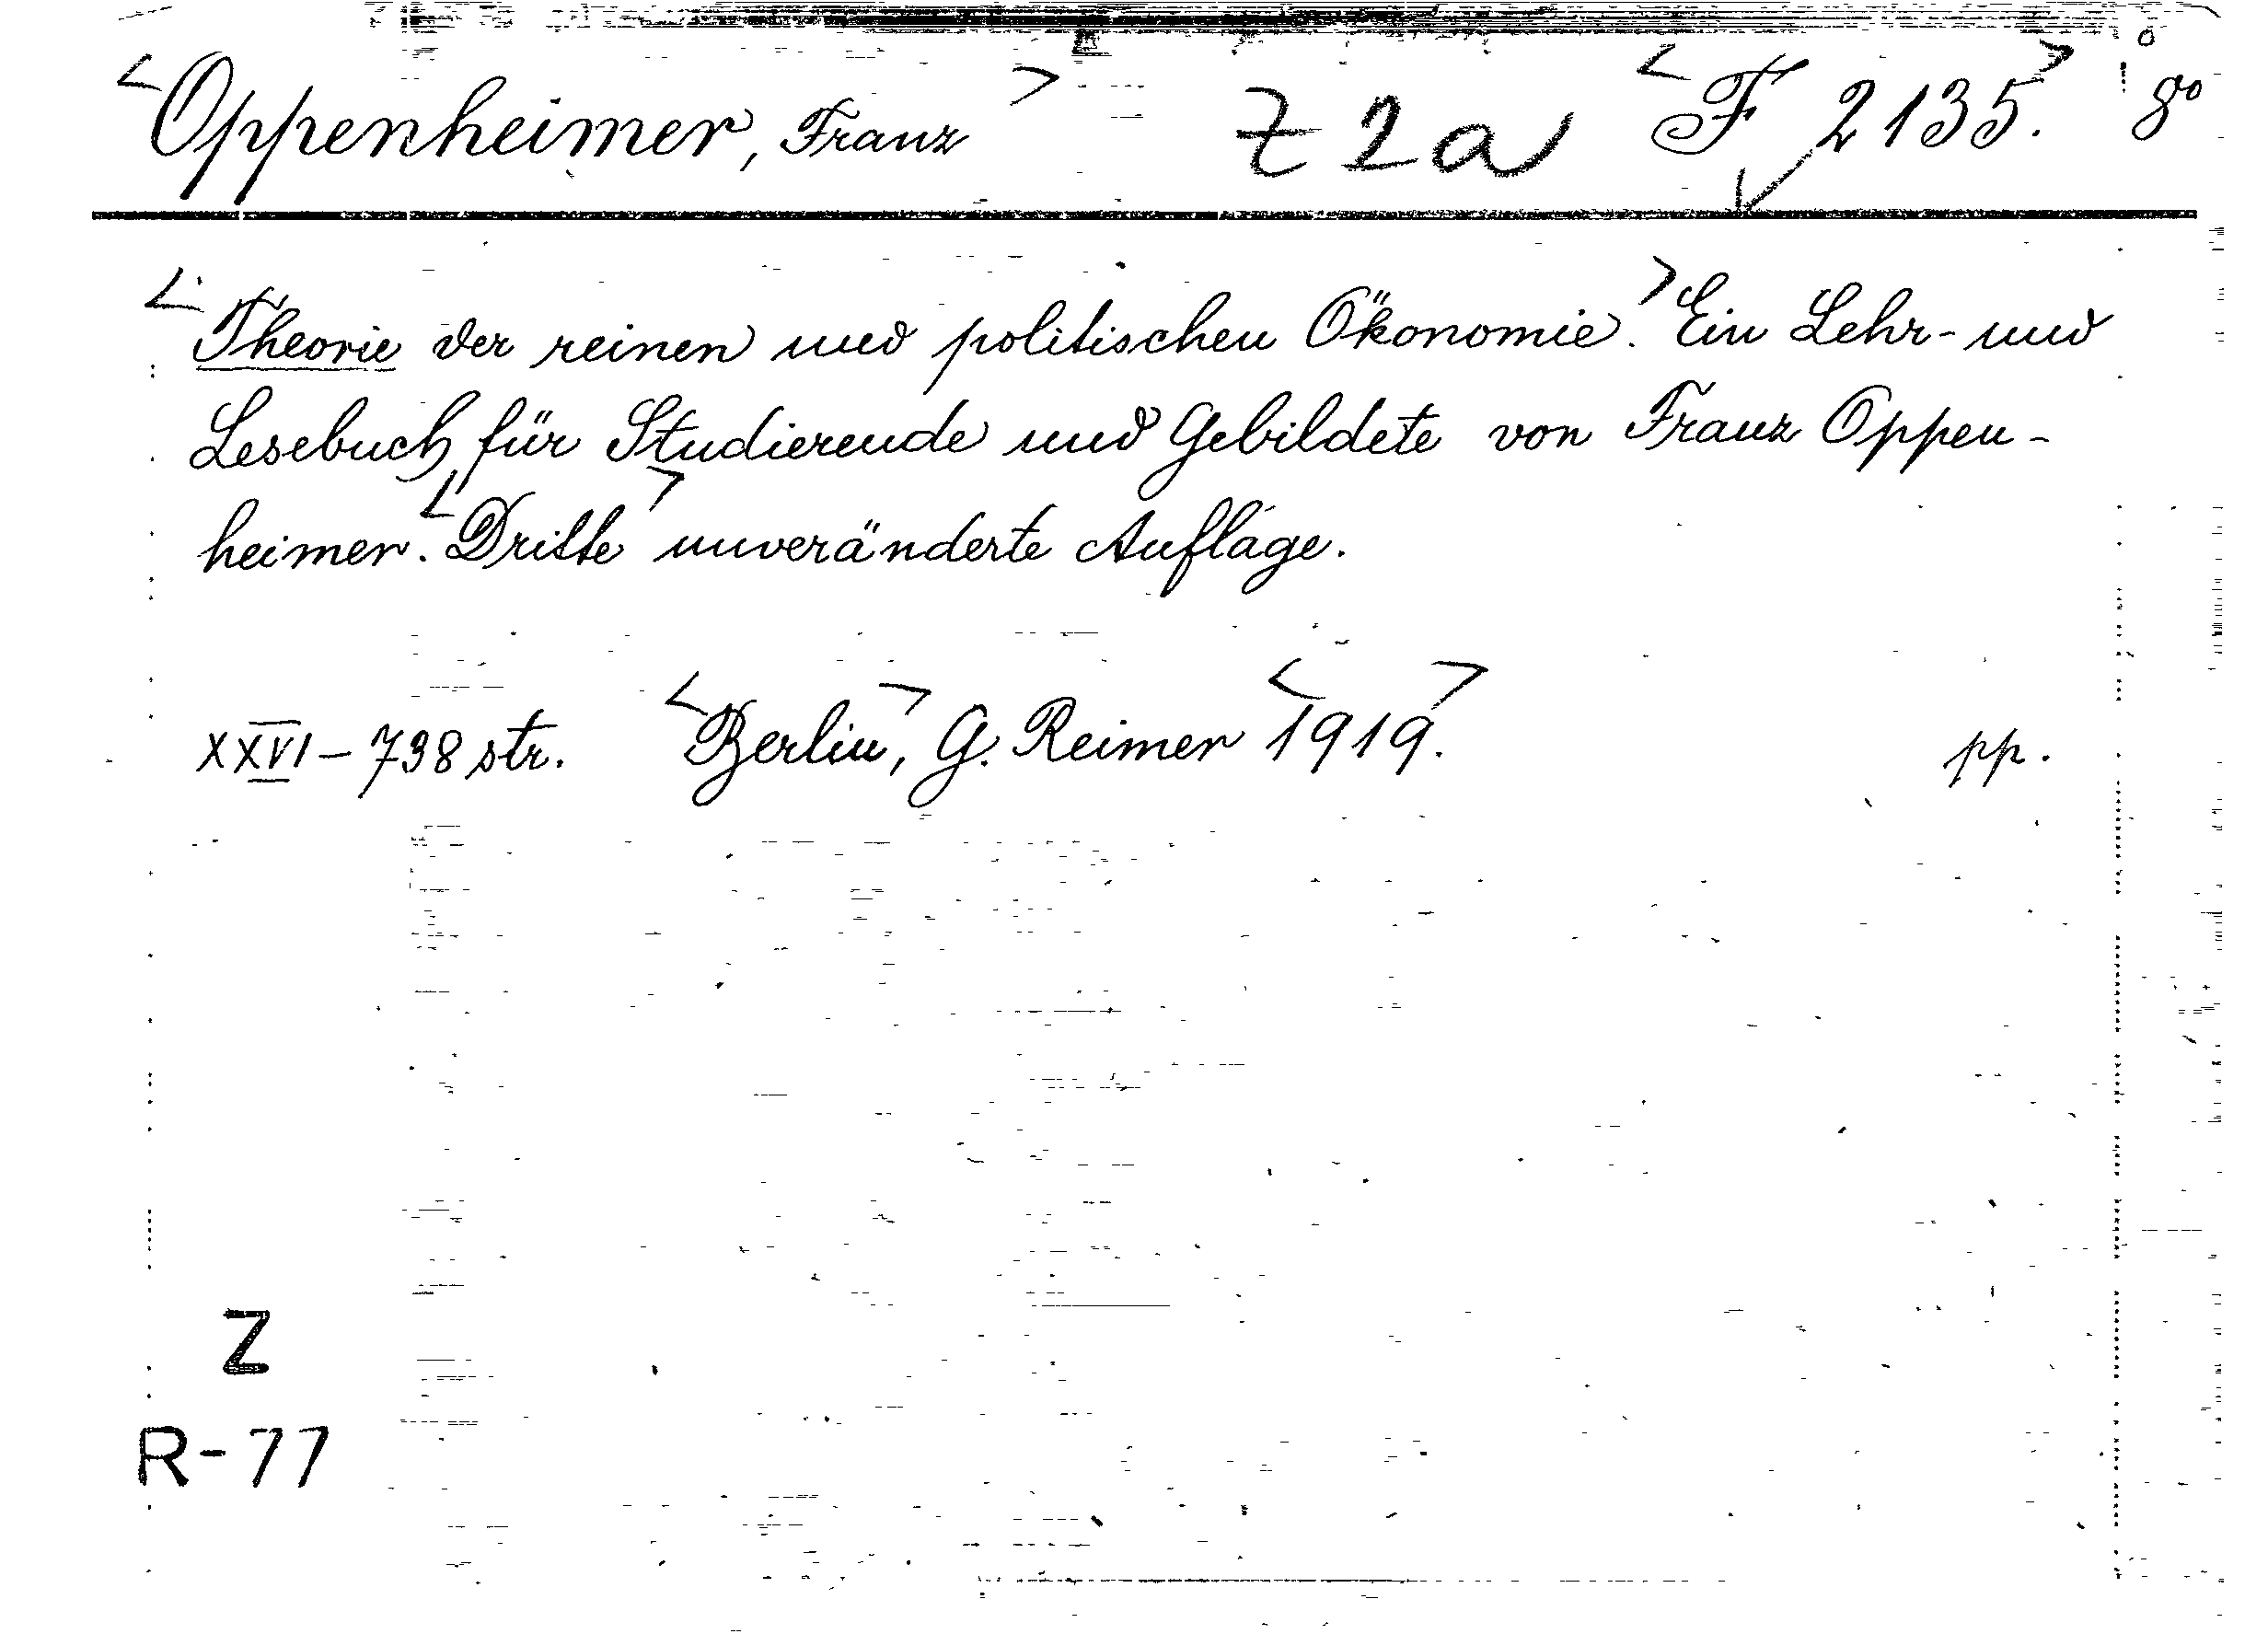 <Oppenheimer, Franz> Z 2a <F 2135.> 8°
<Theorie der reinen und politischen Ökonomie.> Ein Lehr- und
Lesebuch für Studierende und Gebildete von Franz Oppen-
heimer. <Dritte> unveränderte Auflage.
XXVI - 738 str. <Berlin>, G. Reimer <1919.> pp.
Z
R-77